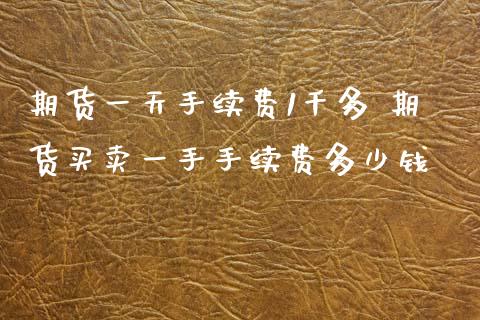 期货一天手续费1千多 期
货买卖一手手续费多少钱